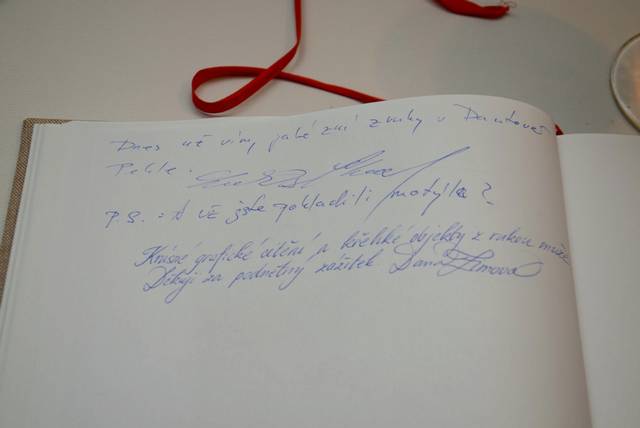 Dnes už vím, jaké zní zvuky v Dantově
Pekle.
P.S.: A vě jste pohladili motýlka?
Krásné grafické cítění a křehké objekty z rukou muže
Děkuji za podnětný zážitek Dana